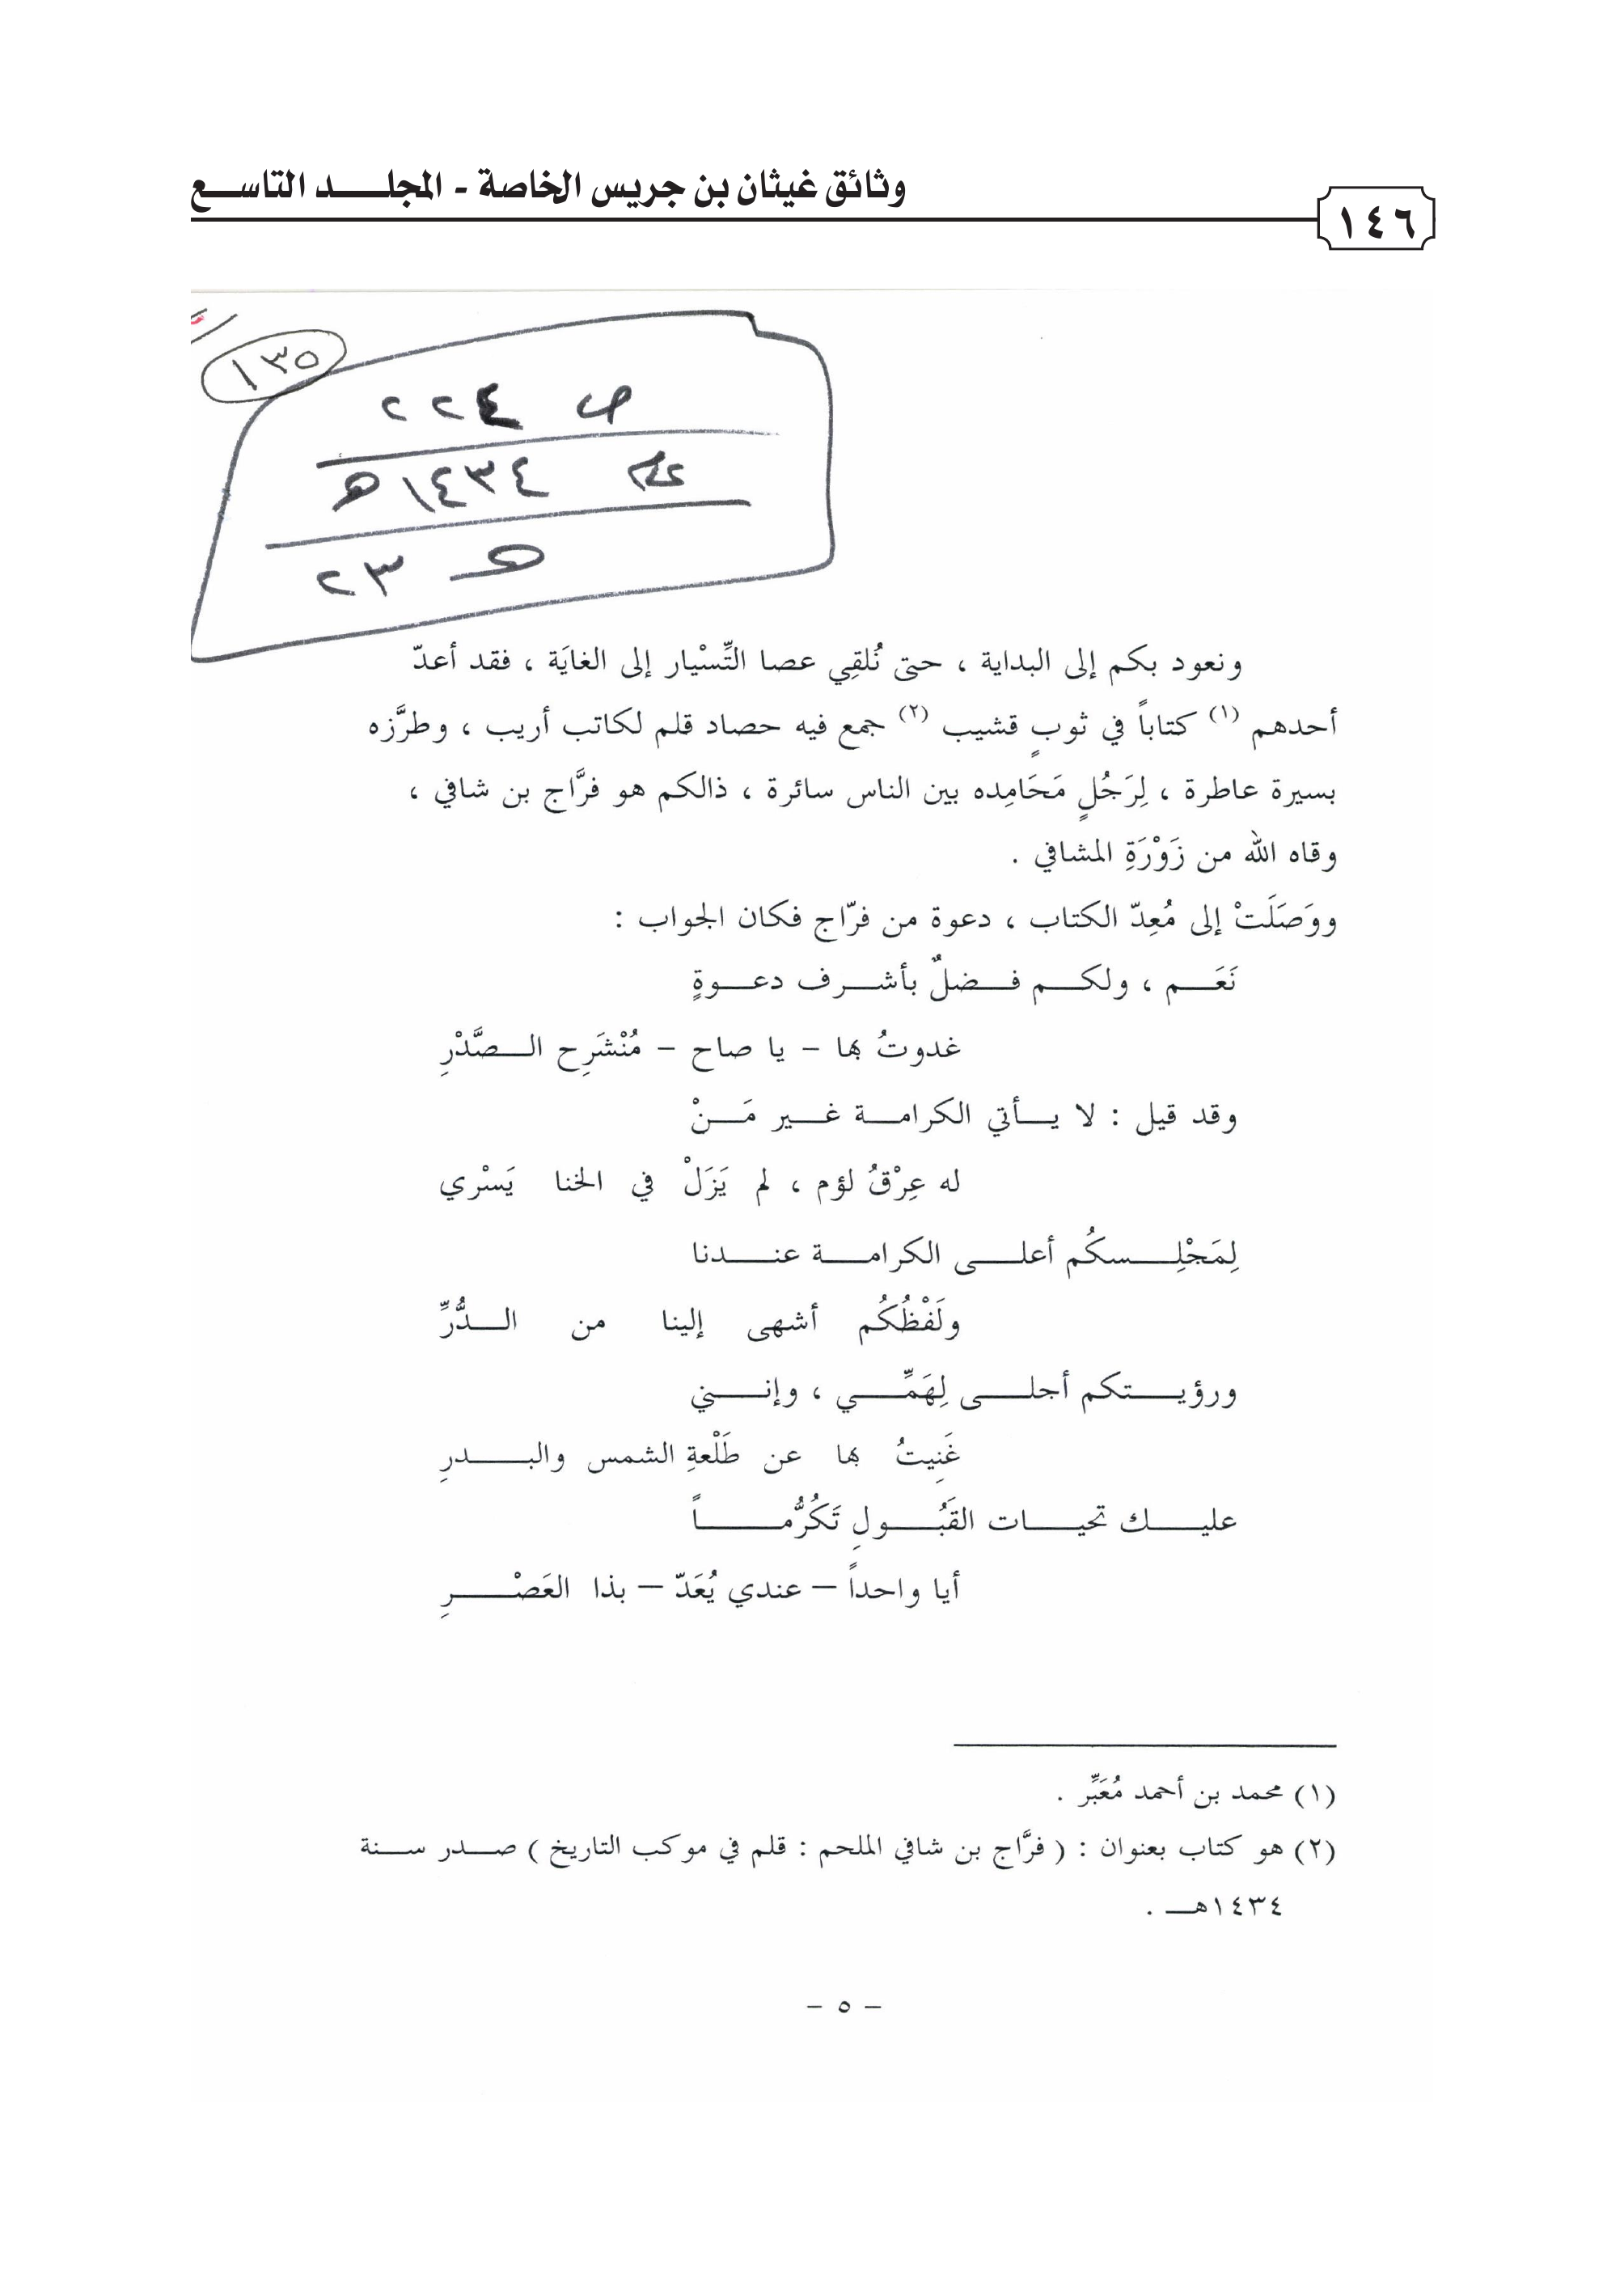 وثائق غيثان بن جريس الخاصة - المجلد التاسع
١٤٦
١٣٥
ص ٢٢٤
عام ١٤٣٤هـ
هـ ٢٣
ونعود بكم إلى البداية ، حتى نُلقِي عصا التِّسْيار إلى الغايَة ، فقد أعدّ
أحدهم (١) كتاباً في ثوبٍ قشيب (٢) جمع فيه حصاد قلم لكاتب أريب ، وطرَّزه
بسيرة عاطرة ، لِرَجُلٍ مَحَامِده بين الناس سائرة ، ذالكم هو فرَّاج بن شافي ،
وقاه الله من زَوْرَةِ المشافي .
ووَصَلَتْ إلى مُعِدّ الكتاب ، دعوة من فرّاج فكان الجواب :
نَعَم ، ولكم فضلٌ بأشرف دعوةٍ
غدوتُ بها – يا صاح – مُنْشَرِح الصَّدْرِ
وقد قيل : لا يأتي الكرامة غير مَنْ
له عِرْقُ لؤم ، لم يَزَلْ في الخنا يَسْري
لِمَجْلِسكُم أعلى الكرامة عندنا
ولَفْظُكُم أشهى إلينا من الدُّرِّ
ورؤيتكم أجلى لِهَمِّي ، وإنني
غَنِيتُ بها عن طَلْعةِ الشمس والبدرِ
عليك تحيات القَبُولِ تَكَرُّماً
أيا واحداً – عندي يُعَدّ – بذا العَصْرِ
(١) محمد بن أحمد مُعَبِّر .
(٢) هو كتاب بعنوان : ( فرَّاج بن شافي الملحم : قلم في موكب التاريخ ) صدر سنة
١٤٣٤هـ .
– ٥ –